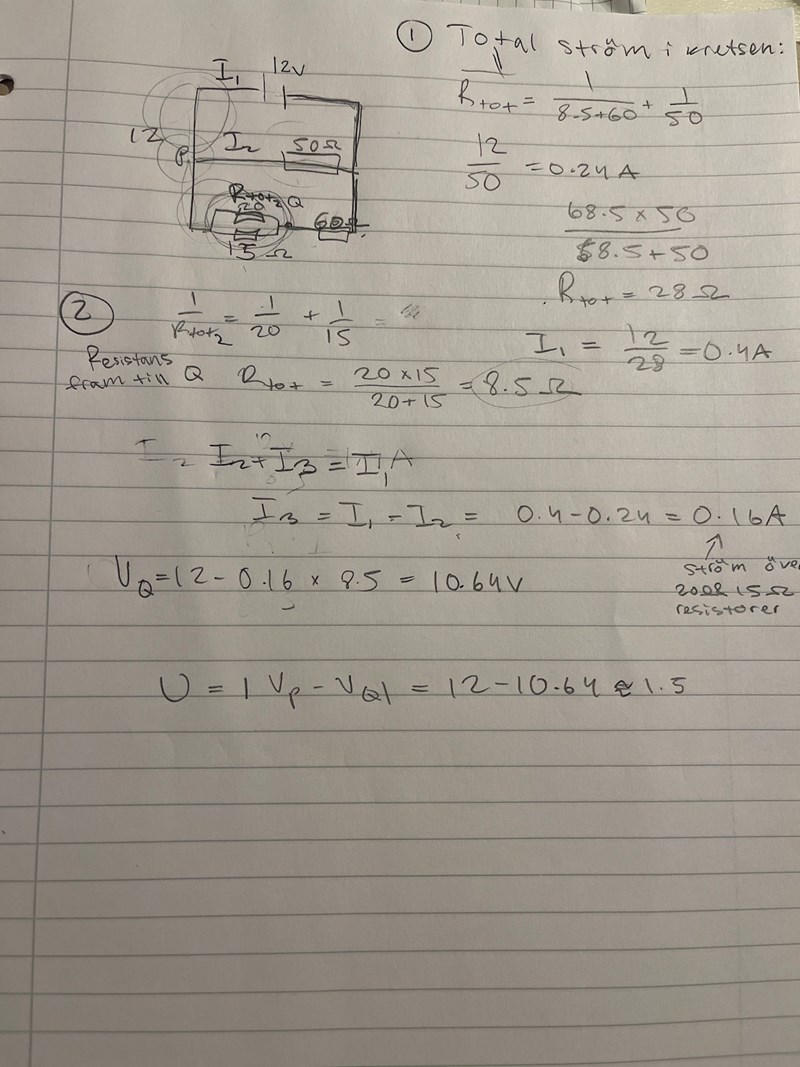 ① Total ström i kretsen:
Rtot = 1/8.5+60 + 1/50
12/50 = 0.24A
68.5 x 50/68.5 + 50
Rtot = 28 Ω
I1 = 12/28 = 0.4A
I1 12V
12
P I2 50Ω
Rtot2 Q
20 60Ω
15 Ω
② 1/Rtot2 = 1/20 + 1/15 =
Resistans
fram till Q Rtot = 20x15/20+15 = 8.5 Ω
I2 I2+I3 = I1 A
I3 = I1 - I2 = 0.4-0.24 = 0.16A
ström öve
20 & 15 Ω
resistorer
VQ=12- 0.16 x 8.5 = 10.64V
U = | Vp - VQ| = 12-10.64 ≈ 1.5